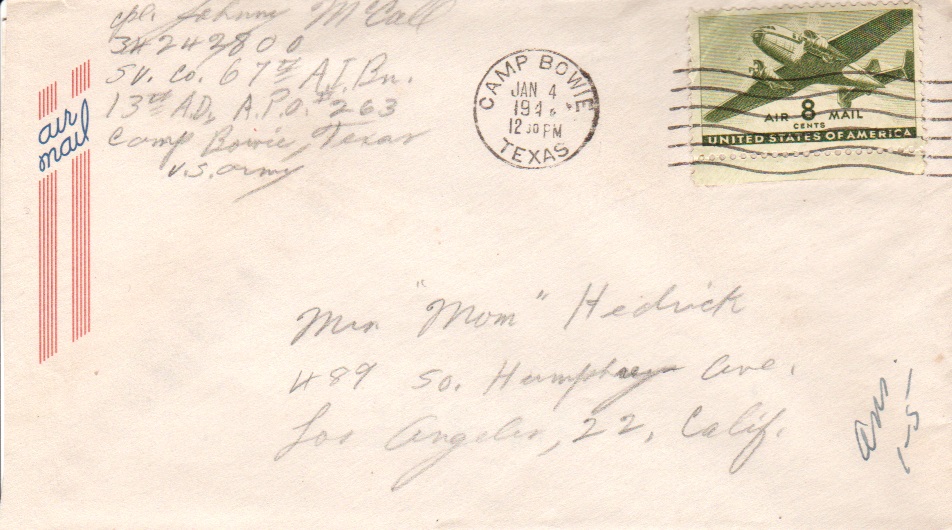 cpl. Johnny McCall
34242800
SV. Co. 67th A.I.Bn.
13th A.D., A.P.O. #263
Camp Bowie, Texas
U.S. Army
air
mail
CAMP BOWIE
JAN 4
12 30 PM
TEXAS
AIR 8 MAIL
CENTS
UNITED STATES OF AMERICA
Mrs "Mom" Hedrick
489 So. Humphrey Ave.
Los Angeles, 22, Calif.
ans.
1-5